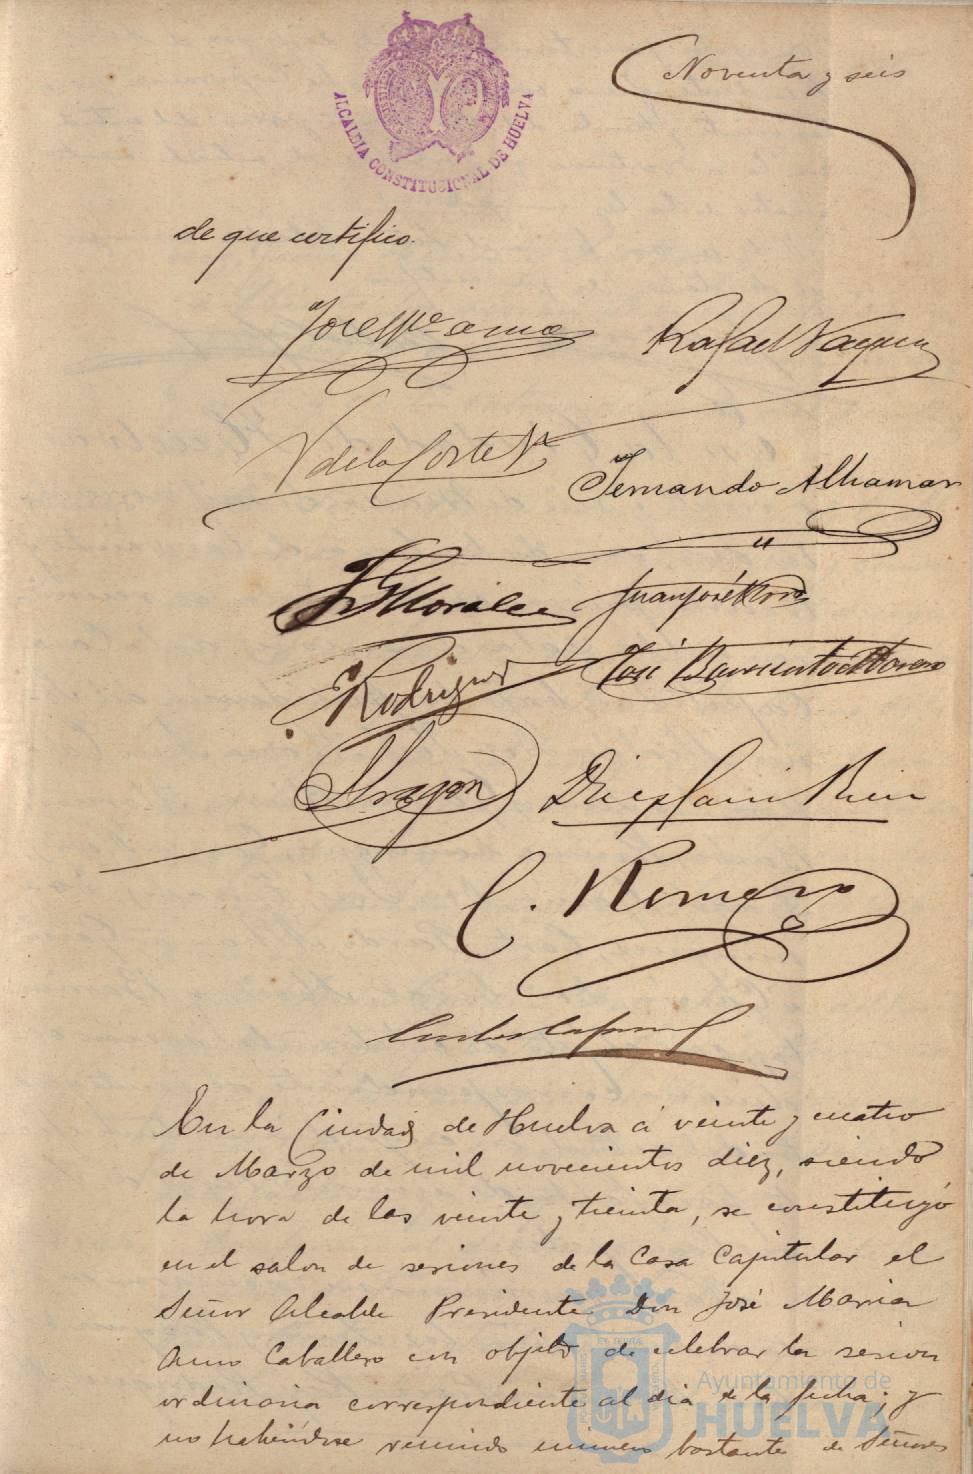 Noventa y seis
ALCALDIA CONSTITUCIONAL DE HUELVA
de que certifico.
José Mª amo
Rafael Vazquez
V de la Corte
Fernando Alhamar
Morales
Juan José
Rodriguez
José Barrientos
Aragon
C. Romero
En la Ciudad de Huelva á veinte y cuatro
de Marzo de mil novecientos diez, siendo
la hora de las veinte y treinta, se constituyó
en el salon de sesiones de la Casa Capitular el
Señor Alcalde Presidente Don José Maria
Amo Caballero con objeto de celebrar la sesion
ordinaria correspondiente al dia de la fecha; y
no habiéndose reunido número bastante de Señores
Ayuntamiento de
HUELVA